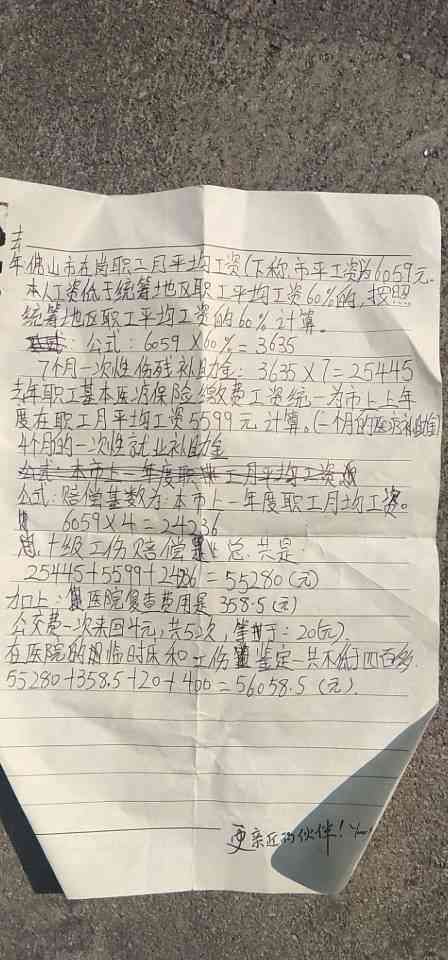 去
年佛山市在岗职工月平均工资(下称市平工资)为6059元.
本人工资低于统筹地区职工平均工资60%的,按照
统筹地区职工平均工资的60%计算。
公式:6059×60%=3635
7个月一次性伤残补助金:3635×7=25445
去年职工基本医疗保险缴费工资统一为市上上年
度在职工月平均工资5599元计算。(一个月的医疗补助金)
4个月的一次性就业补助金
公式:本市上一年度职工月平均工资
公式:赔偿基数为:本市上一年度职工月均工资。
6059×4=24236
总十级工伤赔偿 总共是:
25445+5599+24236=55280(元)
加上:医院复查费用是358.5(元)
公交费一次来回4元,共5次,等于:20(元).
在医院的 临时床和工伤鉴定一共不低于四百多.
55280+358.5+20+400=56058.5(元).
更亲近的伙伴!